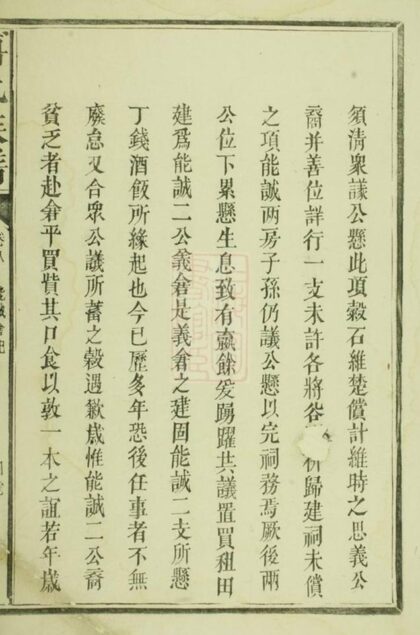 須清衆議公懸此項穀石維楚償計維時之思義公
裔并善位詳行一支未許各將谷 析歸建祠未償
之項能誠两房子孫仍議公懸以完祠務焉厥後兩
公位下累懸生息致有贏餘爰踴躍共議置買租田
建爲能誠二公義倉是義倉之建固能誠二支所懸
丁錢酒飯所緣起也今已歷多年恐後任事者不無
廢怠又合衆公議所蓄之穀遇歉歲惟能誠二公裔
貧乏者赴倉平買貲其口食以敦一本之誼若年歲